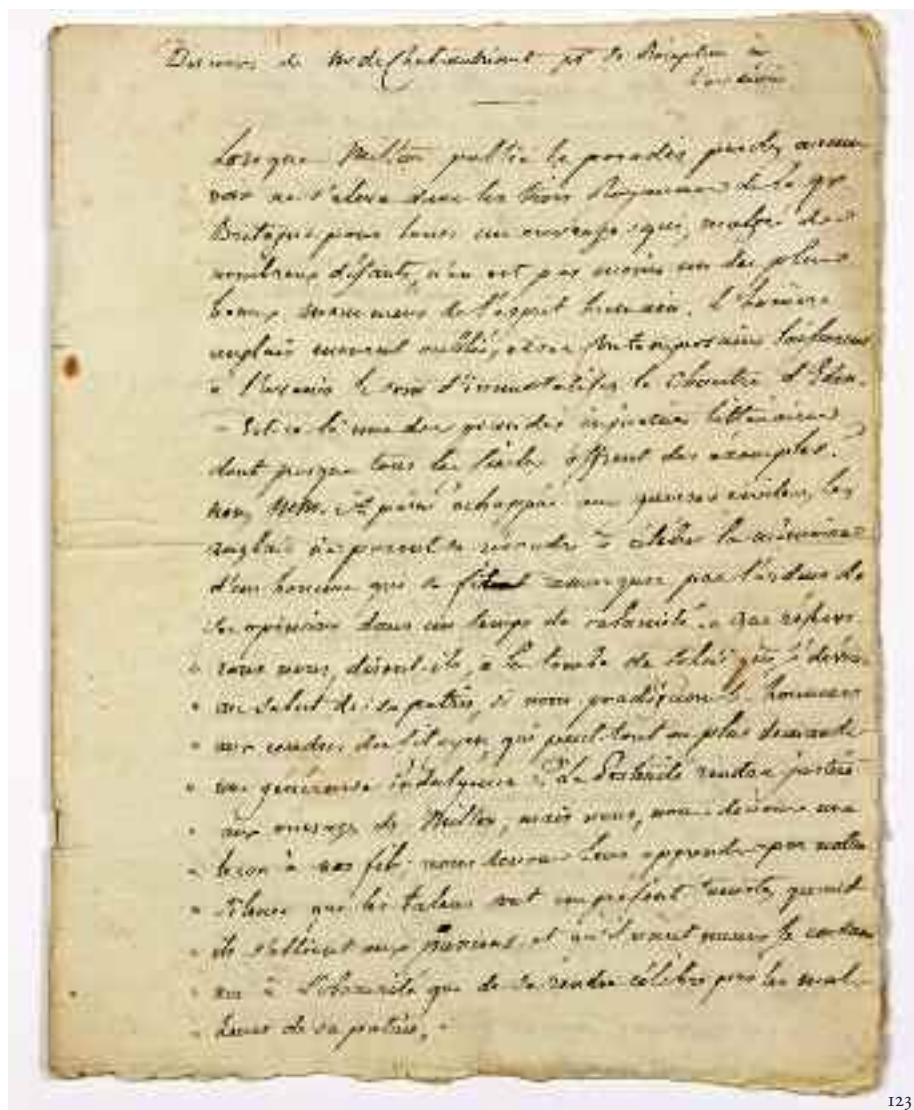 Discours de Mr de Chateaubriant pr sa Réception à
l'académie
Lorsque Milton publia le paradis perdu, aucune
voix ne s'éleva dans les trois Royaumes de la gde
Bretagne pour louer un ouvrage qui, malgré de
nombreux défauts, n'en est pas moins un des plus
beaux monumens de l'esprit humain. l'homère
anglais mourut oublié, et ses contemporains laissèrent
à l'avenir le soin d'immortaliser le Chantre d'Eden.
- Est-ce là une des grandes injustices littéraires
dont presque tous les siècles offrent des exemples?
non, MM. à peine échappés aux guerres civiles, les
anglais ne purent se résoudre à célébrer la mémoire
d'un homme qui se fit remarquer par l'ardeur de
ses opinions dans un temps de calamité. « que réserve-
« rons nous, disent-ils, à la tombe de celui qui s'dévoue
« au salut de sa patrie, si nous prodiguons les honneurs
« aux cendres du Citoyen qui peut tout au plus demander
« une généreuse indulgence? la Postérité rendra justice
« aux ouvrages de Milton, mais nous, nous devons une
« leçon à nos fils; nous devons leur apprendre par notre
« silence que les talens sont un présent funeste quand
« ils s'allient aux passions, et qu'il vaut mieux se condam-
« ner à l'obscurité que de se rendre célèbre par les mal-
« heurs de sa patrie. »
123